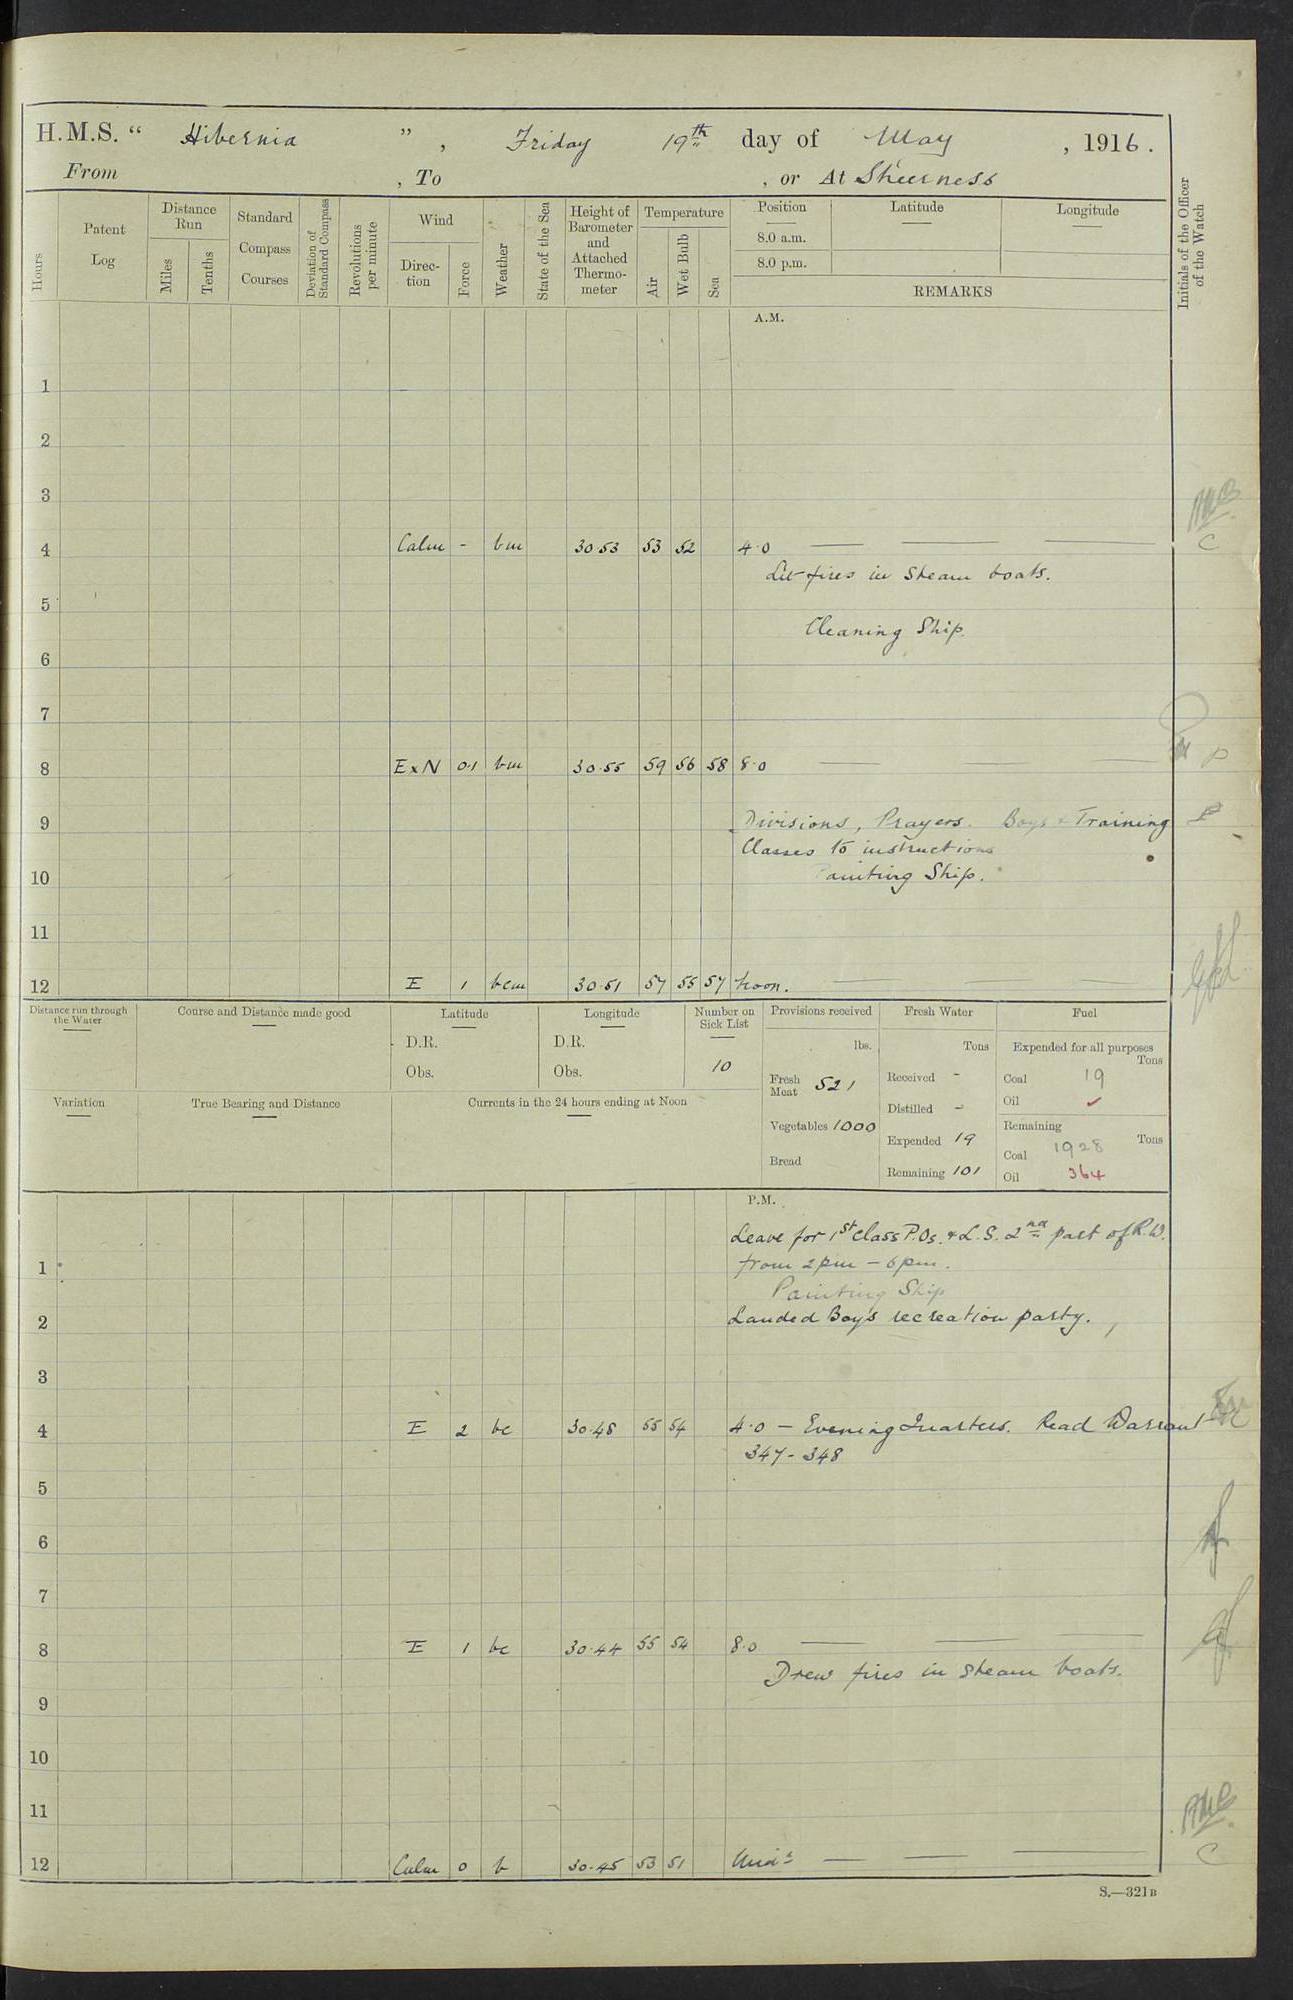 H.M.S. “ Hibernia ”, Friday 19th day of May, 1916.
From , To , or At Sheerness
Hours
Patent Log
Distance Run
Miles
Tenths
Standard Compass Courses
Deviation of Standard Compass
Revolutions per minute
Wind
Direction
Force
Weather
State of the Sea
Height of Barometer and Attached Thermometer
Temperature
Air
Wet Bulb
Sea
Position
8.0 a.m.
8.0 p.m.
Latitude
Longitude
REMARKS
Initials of the Officer of the Watch
A.M.
1
2
3
4 Calm - bm 30.53 53 52 4.0
Lit fires in steam boats.
5
Cleaning Ship.
6
7
8 E x N 0.1 bm 30.55 59 56 58 8.0
9 Divisions, Prayers. Boys & Training
Classes to instructions
10 Painting Ship.
11
12 E 1 bcm 30.51 57 55 57 Noon.
Distance run through the Water
Course and Distance made good
Latitude
D.R.
Obs.
Longitude
D.R.
Obs.
Number on Sick List
10
Provisions received
lbs.
Fresh Meat 521
Vegetables 1000
Bread
Fresh Water
Tons
Received -
Distilled -
Expended 19
Remaining 101
Fuel
Expended for all purposes
Tons
Coal 19
Oil ✓
Remaining
Tons
Coal 1928
Oil 364
Variation
True Bearing and Distance
Currents in the 24 hours ending at Noon
P.M.
Leave for 1st Class P.Os. & L.S. 2nd part of R.W.
1 from 2pm - 6pm.
Painting Ship
2 Landed Boy's recreation party.
3
4 E 2 bc 30.48 55 54 4.0 - Evening Quarters. Read Warrant
347 - 348
5
6
7
8 E 1 bc 30.44 55 54 8.0
Drew fires in steam boats.
9
10
11
12 Calm 0 b 30.45 53 51 Midt
S.—321B